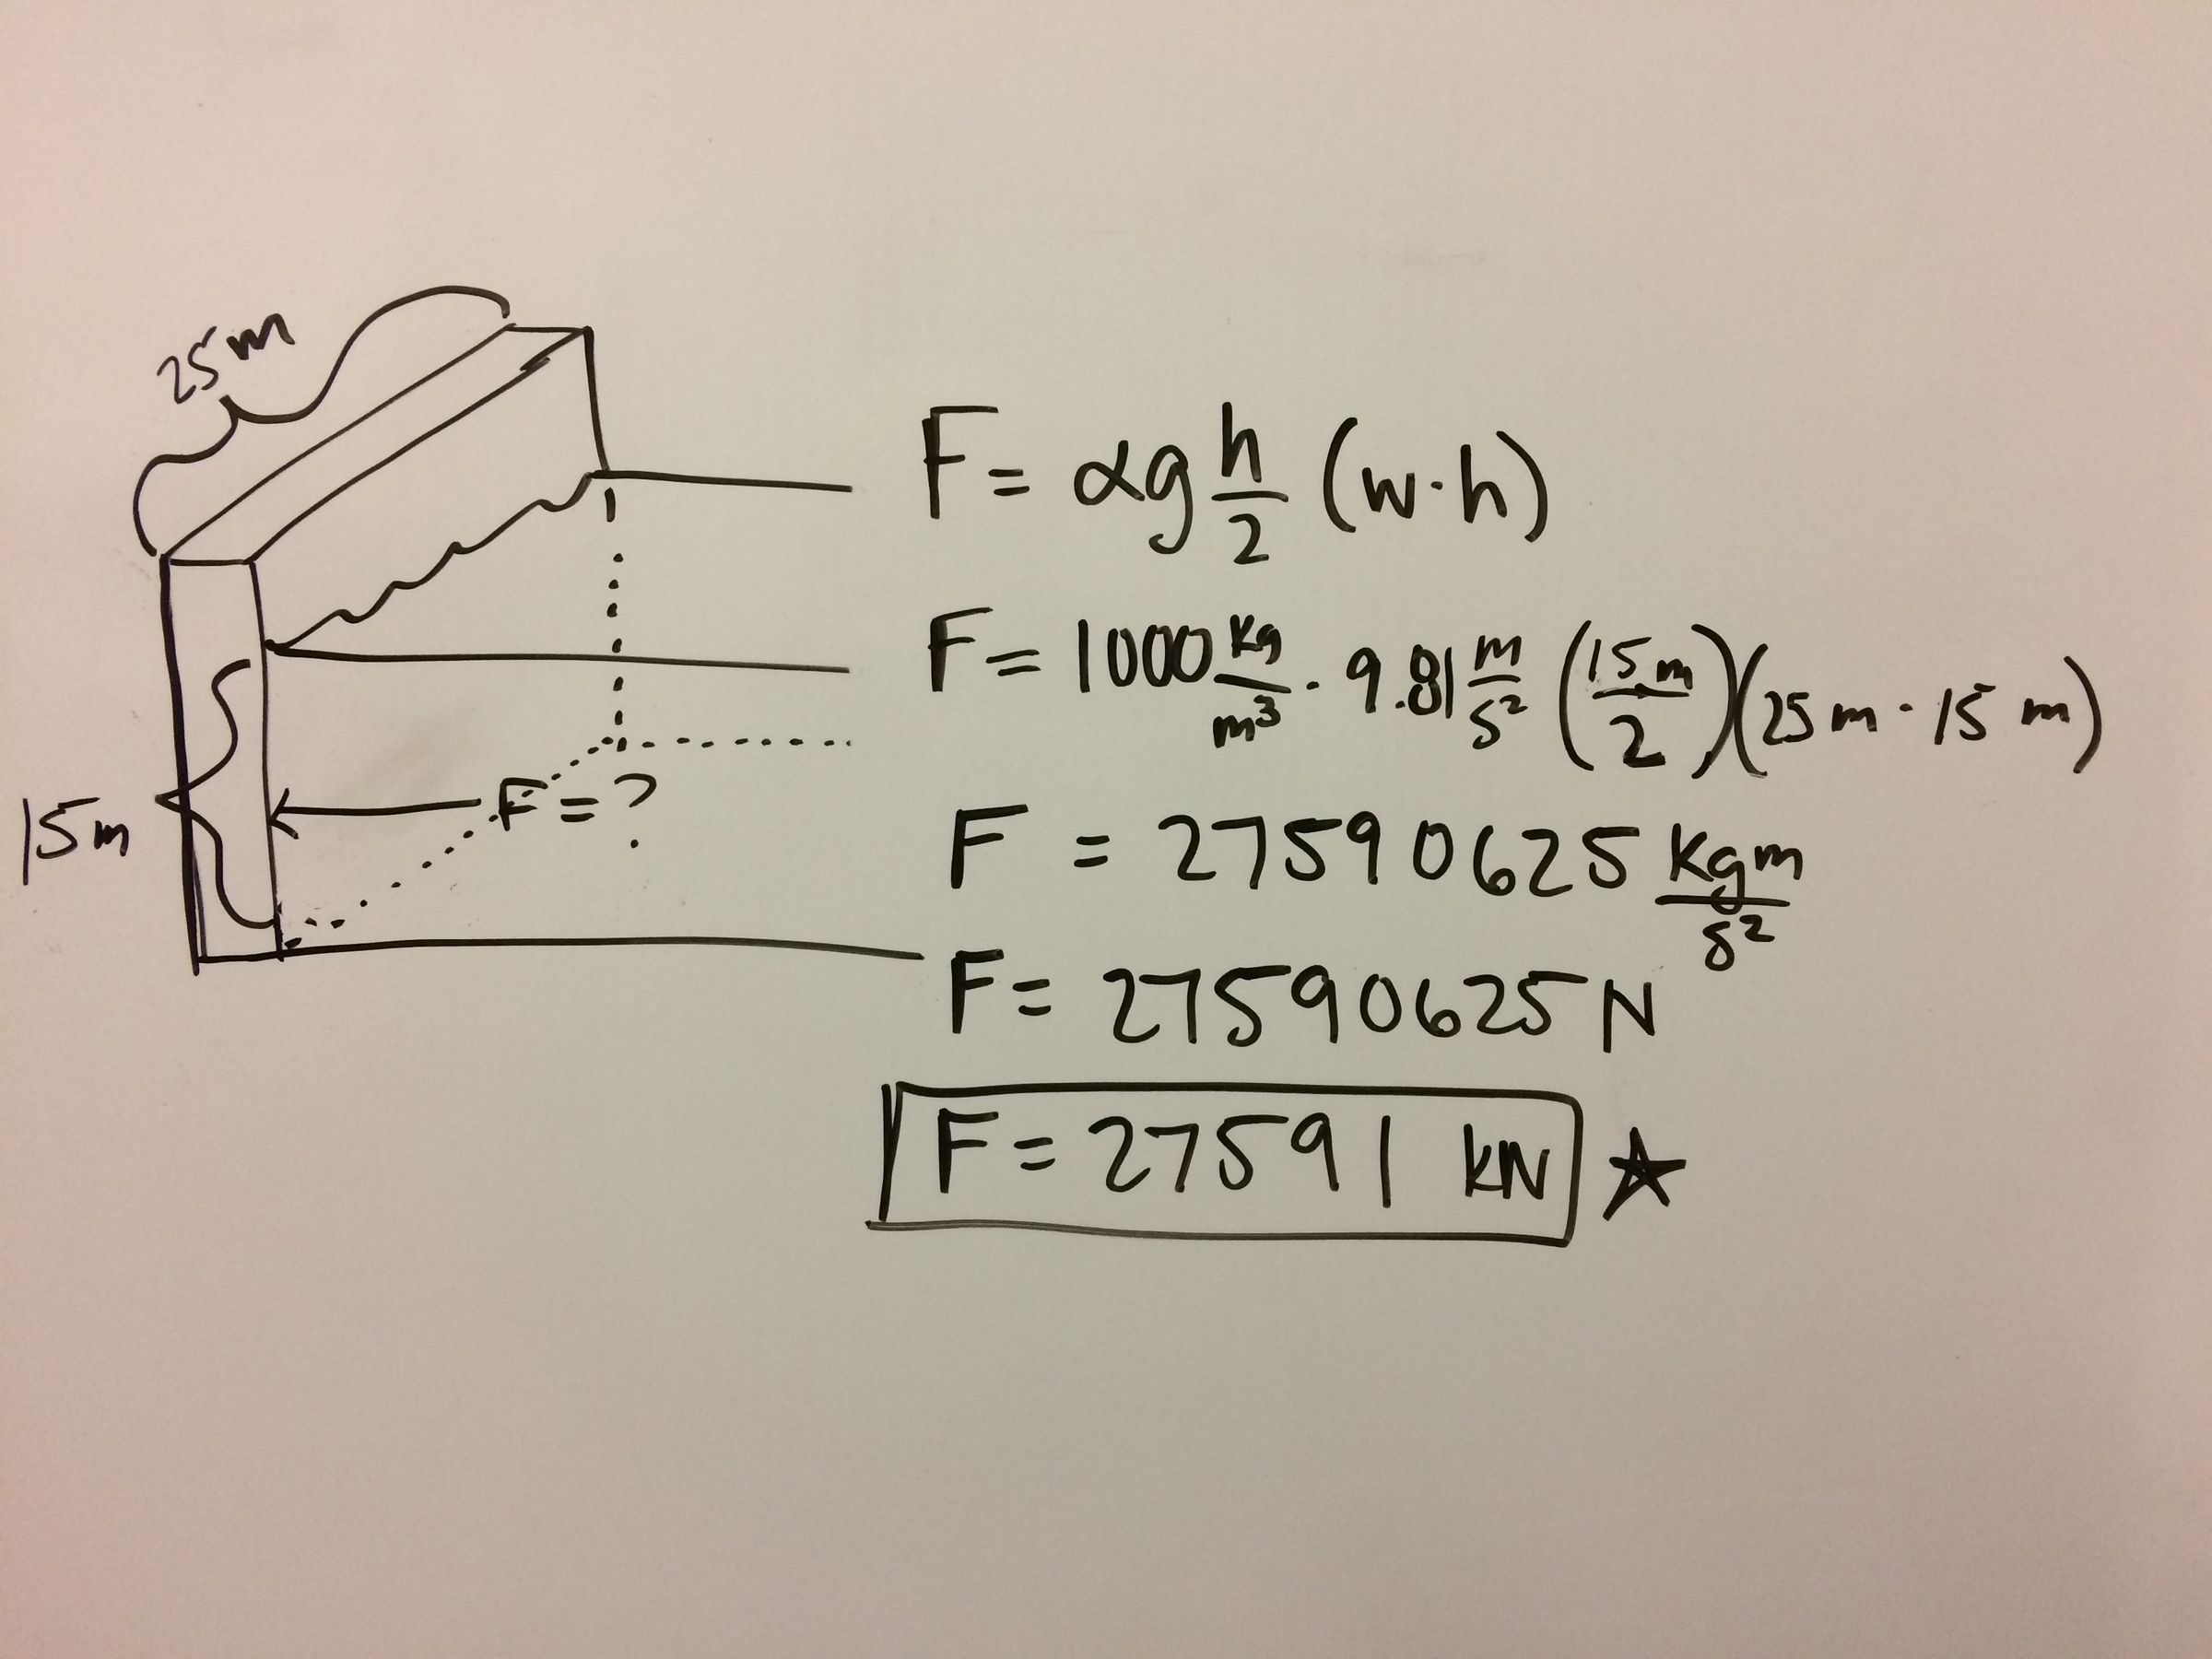 25m
15m
F = ?
F = αg h/2 (w·h)
F = 1000 kg/m³ · 9.81 m/s² (15m/2)(25m · 15 m)
F = 27590625 kgm/s²
F = 27590625 N
F = 27591 kN ☆